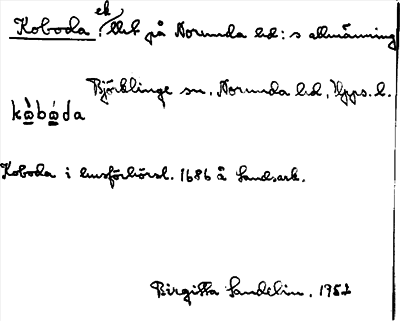 Koboda, ek tllit på Norunda hd:s allmänning
Björklinge sn, Norunda hd, Upps. l.
kὼbώda
Koboda i husförhörsl. 1686 å Landsark.
Birgitta Sandelin. 1952